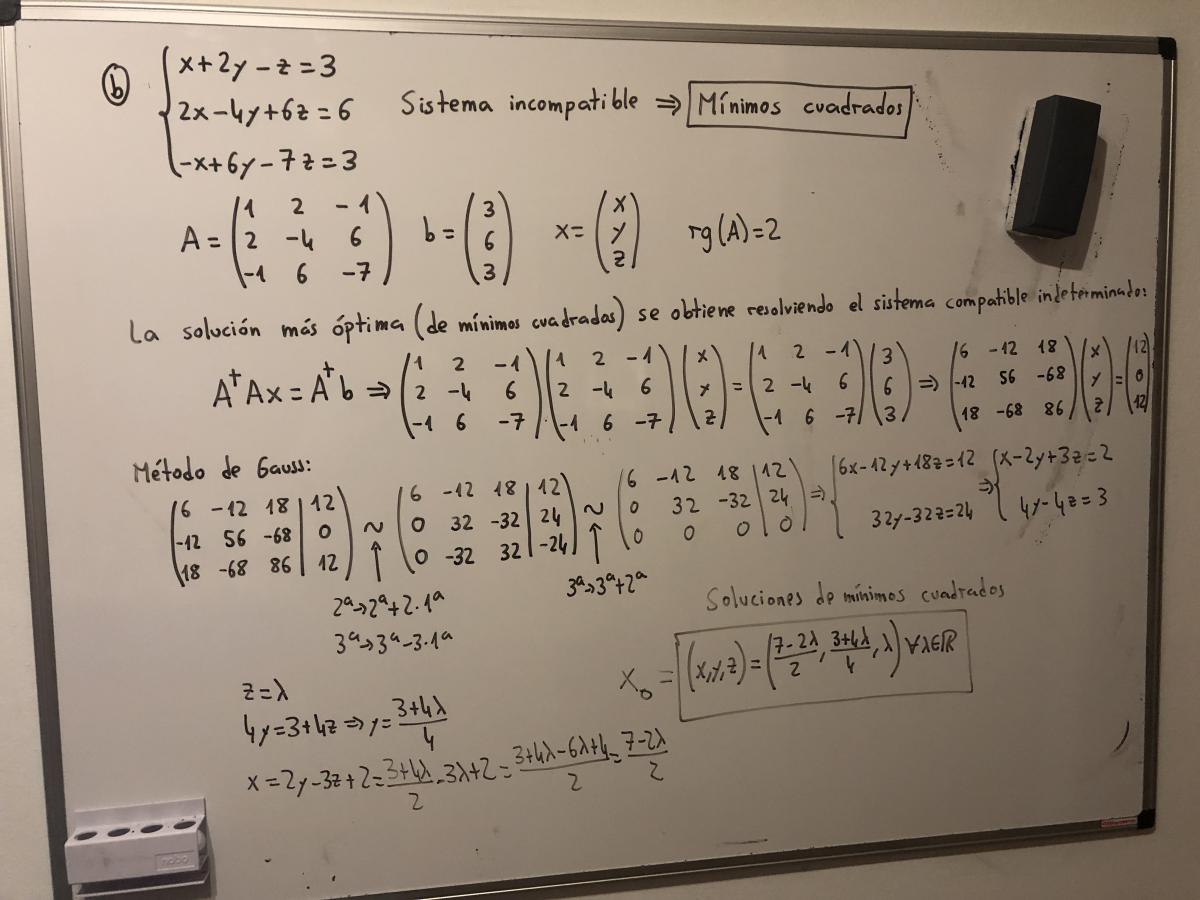 b
x+2y-z=3
2x-4y+6z=6 Sistema incompatible ⇒ Mínimos cuadrados
-x+6y-7z=3
A = (1 2 -1; 2 -4 6; -1 6 -7) b = (3; 6; 3) x = (x; y; z) rg(A)=2
La solución más óptima (de mínimos cuadrados) se obtiene resolviendo el sistema compatible indeterminado:
A^t Ax = A^t b ⇒ (1 2 -1; 2 -4 6; -1 6 -7) (1 2 -1; 2 -4 6; -1 6 -7) (x; y; z) = (1 2 -1; 2 -4 6; -1 6 -7) (3; 6; 3) ⇒ (6 -12 18; -12 56 -68; 18 -68 86) (x; y; z) = (12; 0; 12)
Método de Gauss:
(6 -12 18 | 12; -12 56 -68 | 0; 18 -68 86 | 12) ~ (6 -12 18 | 12; 0 32 -32 | 24; 0 -32 32 | -24) ~ (6 -12 18 | 12; 0 32 -32 | 24; 0 0 0 | 0) ⇒ {6x-12y+18z=12; 32y-32z=24 ⇒ {x-2y+3z=2; 4y-4z=3
↑ ↑
2ª→2ª+2·1ª 3ª→3ª+2ª
3ª→3ª-3·1ª
Soluciones de mínimos cuadrados
x₀ = (x,y,z) = (7-2λ/2, 3+4λ/4, λ) ∀λ∈ℝ
z=λ
4y=3+4z ⇒ y = 3+4λ/4
x = 2y-3z+2 = 3+4λ/2 - 3λ+2 = 3+4λ-6λ+4/2 = 7-2λ/2
nobo